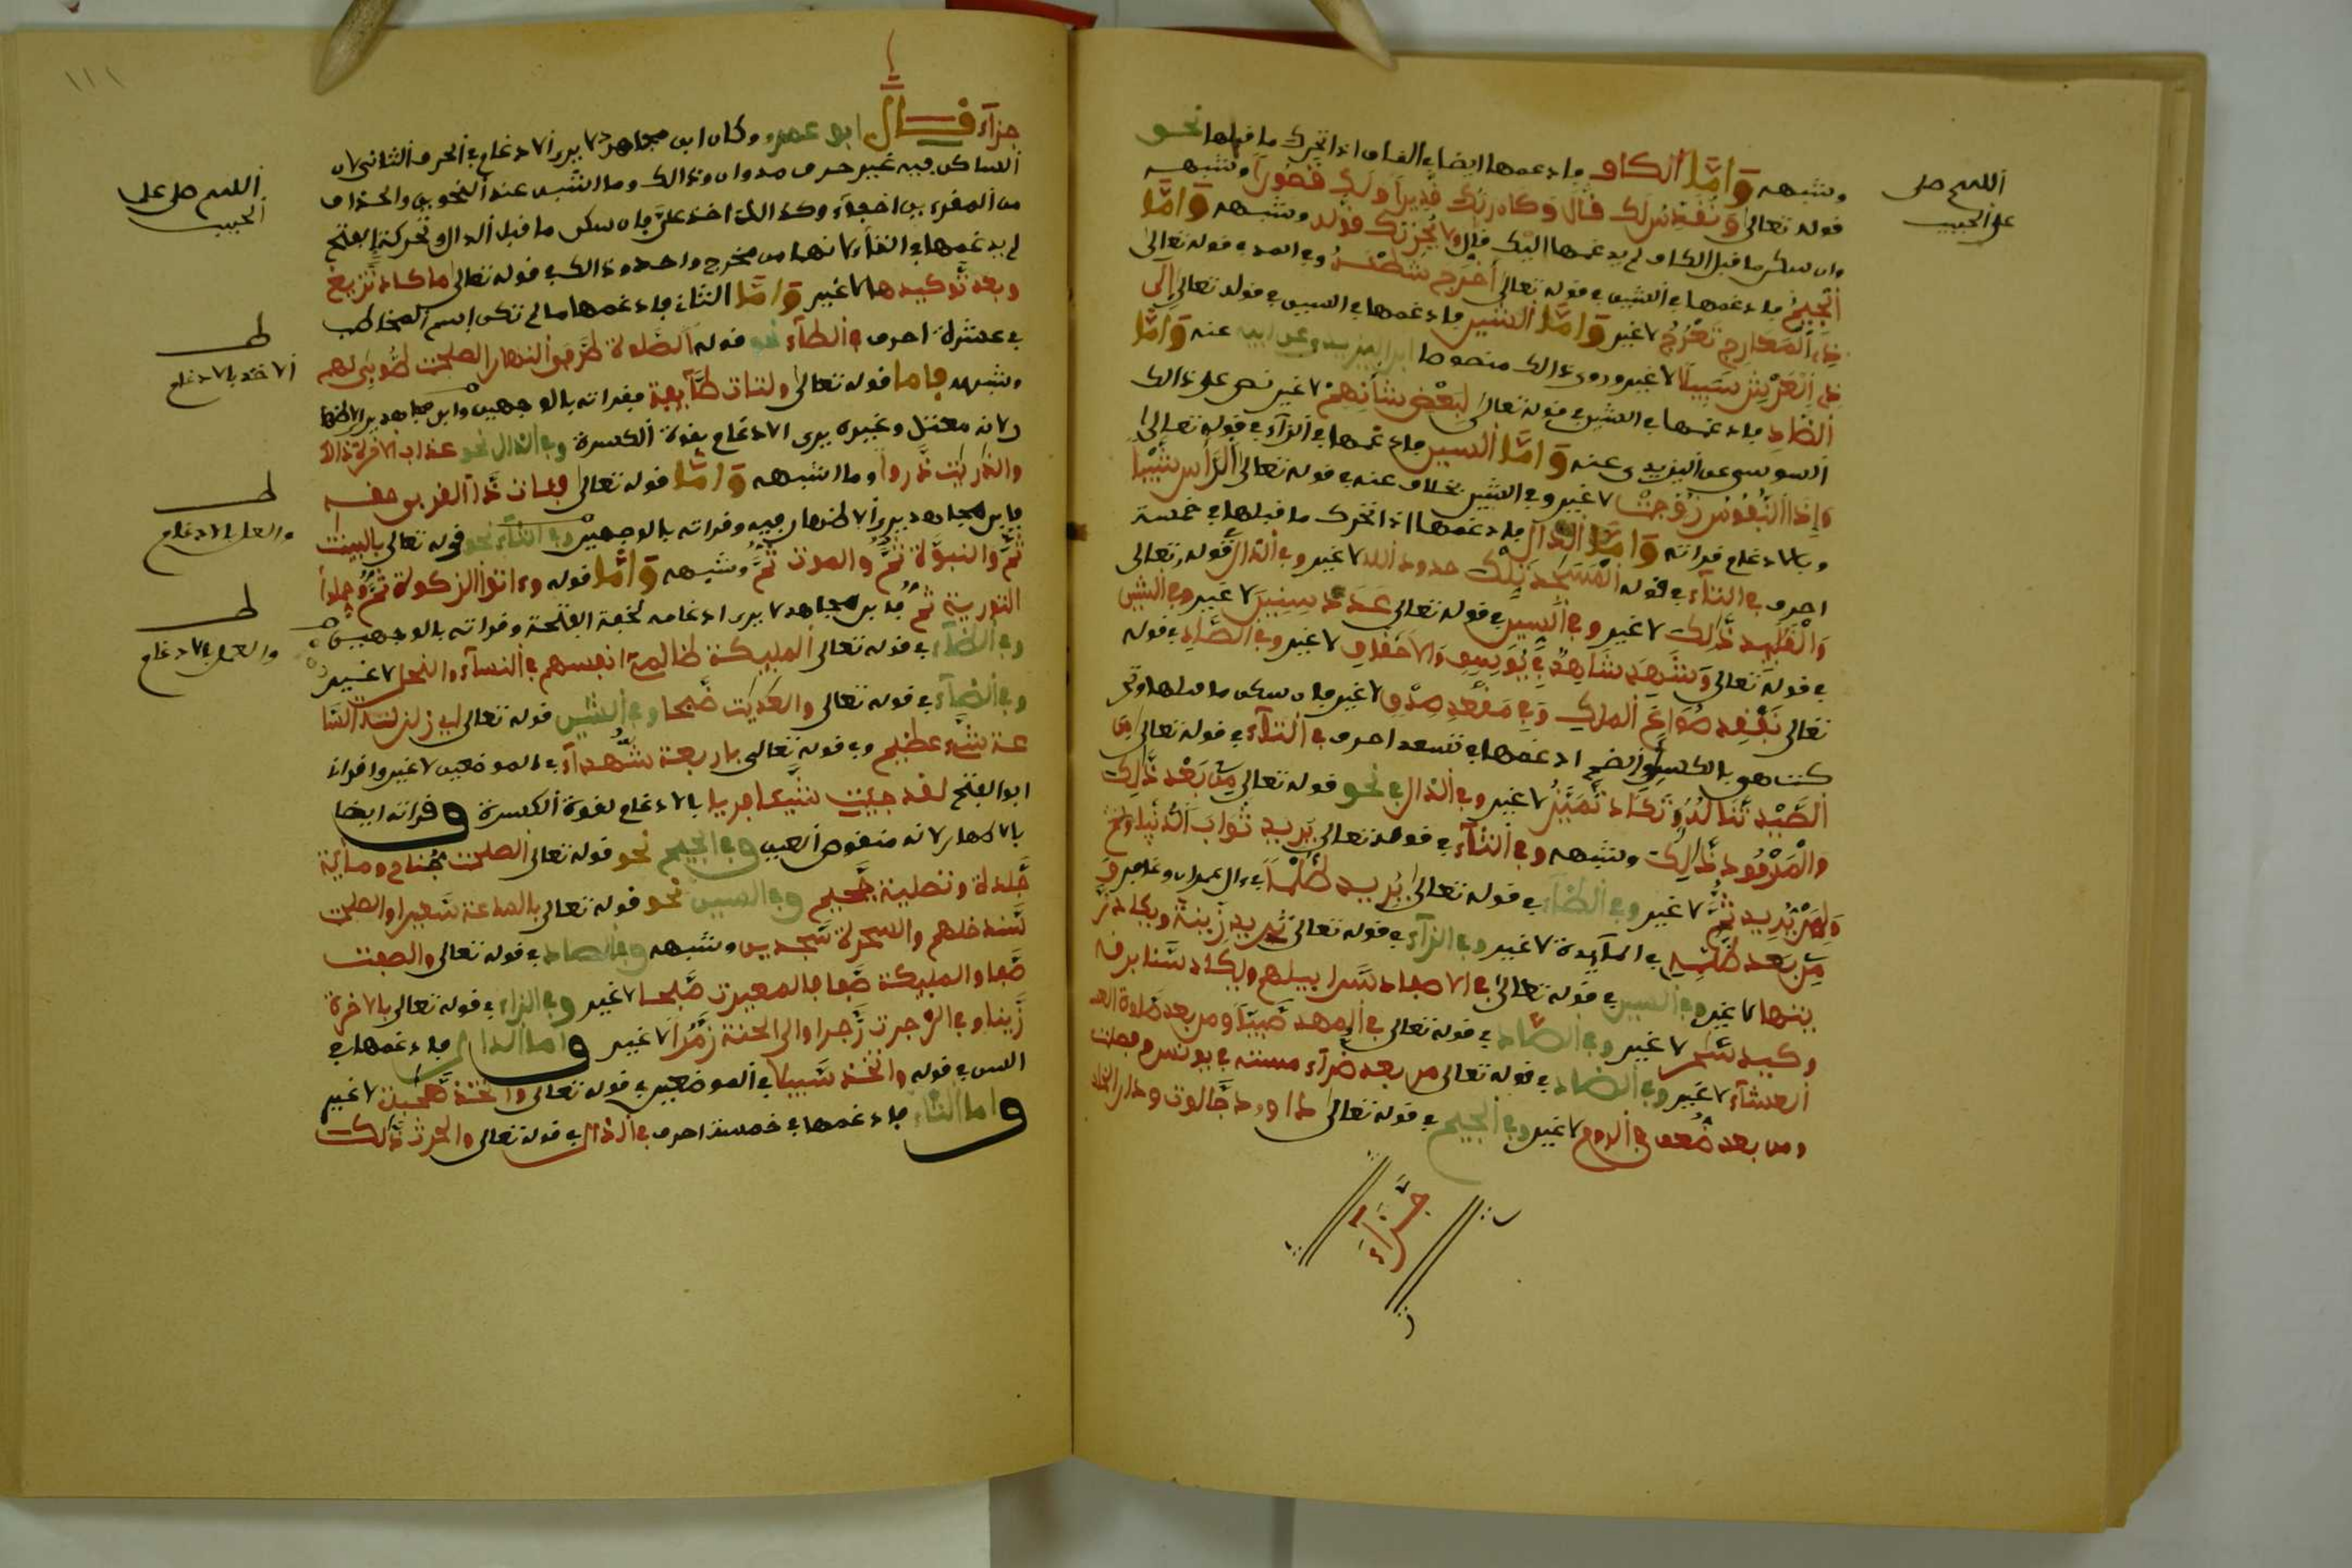 وشبهه وَأمَّا الكاف فادغمها ايضا في القاف اذا تحرك ما قبلها نحو
قوله تعالى وَنُقَدِّسُ لَك قَّالَ وَكَانَ رَبُّك قَّدِيراً وَلَك قُّصُوراً وشبهه
وان سكن ما قبل الكاف لم يدغمها اليْك قال ولا يُحْزِنْك قَوْلهم وشبهه وَأمَّا
الجيمُ فادغمها في الشين في قوله تعالى أَخْرَج شَّطْـَٔهُ وفي التاء في قوله تعالى
ذِي الْمَعَارِج تَّعْرُجُ لا غير وَأمَّا الشين فادغمها في السين في قوله تعالى إِلَى
ذِي الْعَرْش سَّبِيلًا لا غير وروى ذالك منصوصا ابن اليزيدي عن ابيه عنه وَأمَّا
الضاد فادغمها في الشين في قوله تعالى لِبَعْض شَّأْنِهِمْ لا غير نص على ذالك
السوسي عن اليزيدي عنه وَأمَّا السين فادغمها في الزاء في قوله تعالى
وَإِذَا النُّفُوس زُّوِّجَتْ لا غير وفي الشين بخلاف عنه في قوله تعالى الرَّأْس شَّيْبًا
وبالادغام قراته وَأمَّا الدال فادغمها اذا تحرك ما قبلها في خمسة
احرف في التاء في قوله الْمَسَٰجِد تِّلْكَ حدود الله لا غير وفي الذال قوله تعالى
وَالْقَلَٰٓئِد ذَّٰلِكَ لا غير وفي السين في قوله تعالى عَدَد سِّنِينَ لا غير وفي الشين
في قوله تعالى وَشَهِد شَّاهِدٌ في يُوسُفَ وَالاحْقَافِ لا غير وفي الصَّاد في قوله
تعالى نَفْقِد صُّوَاعَ الملك وَفِي مَقْعَد صِّدْقٍ لا غير فان سكن ما قبلها وتحر
كت هي بالكسر أو الضم ادغمها في تسعة احرف في التاء في قوله تعالى مِن
الصَّيْد تَّنَالُهُ وَتَكَاد تَّمَيَّزُ لا غير وفي الذال في نحو قوله تعالى مِن بَعْد ذَّٰلِكَ
وَالْمَرْفُود ذَّٰلِكَ وشبهه وفي الثاء في قوله تعالى يُرِيد ثَّوَابَ الدُّنْيَا
وَلِمَن نُّرِيد ثُّمَّ لا غير وفي الظاء في قوله تعالى يُرِيد ظُّلْمًا في ءال عمران وغافر و
مِن بَعْد ظُّلْمِهِ في المايدة لا غير وفي الزاء في قوله تعالى تُرِيد زِّينَةَ ويكاد زَّ
يتها لا غير وفي السين في قوله تعالى في الاصفاد سَّرابيلهم ويكاد سَّنا برقه
وكيد سَّحر لا غير وفي الصاد في قوله تعالى في المهد صَّبيًا ومن بعد صَّلوة العـ
العشاء لا غير وفي الضاد في قوله تعالى من بعد ضَّراء مسته في يونس وفصلت
ومن بعد ضُّعف في الروم لا غير وفي الجيم في قوله تعالى داوود جَّالوت ودار الخلد
جَّزَآءُ
اللهم صل
على الحبيب
١١١
جزآء قــال ابو عمرو وكان ابن مجاهد لا يرى الادغام في الحرف الثاني لان
الساكن فيه غير حرف مد وان ذالك وما اشبهه عند النحويين والحذاق
من المقرءين اخفاء وكذالك اخذ علىَّ فان سكن ما قبل الدال وتحركت بالفتح
لم يدغمها الا في التاء لانهما من مخرج واحد وذالك في قوله تعالى ما كاد تَّزيغ
وبعد تَّوكيدها لا غير وَأمَّا التاء فادغمها ما لم تكن اسم المخاطب
في عشرة احرف في الطاء نحو قوله الصَّلوة طَّرفي النهار الصلحت طُّوبى لهم
وشبهه فاما قوله تعالى ولتات طَّآيفة فقراته بالوجهين وابن مجاهد يرى الاظها
ر لانه معتل وغيره يرى الادغام بقوة الكسرة وفي الذال نحو عذاب الاخرة ذالك
والذريت ذَّرواً وما اشبهه وَأمَّا قوله تعالى فئات ذَّا القربى حقه
فابن مجاهد يرى الاظهار فيه وقراته بالوجهين وفي الثاء نحو قوله تعالى بالبينت
ثُمَّ والنبوَّة ثُمَّ والموت ثُمَّ وشبهه وَأمَّا قوله وءاتوا الزكوة ثُمَّ وحملوا
التورية ثُمَّ فابن مجاهد لا يرى ادغامه لخفة الفتحة وقراته بالوجهين
وفي الظاء في قوله تعالى المليكة ظالمي انفسهم في النساء والنحل لا غير
وفي الضاء في قوله تعالى والعديت ضَّبحا وفي الشين قوله تعالى ان زلزلة السَّا
عة شَّيء عظيم وفي قوله تعالى باربعة شُّهداء في الموضعين لا غير واقراني
ابو الفتح لقد جيت شَّيئا فريا بالادغام لقوة الكسرة وقراته ايضا
بالاظهار لانه منقوص العين وفي الجيم نحو قوله تعالى الصلحت جُّناح ومائة
جَّلدة وتصلية جَّحيم وفي السين نحو قوله تعالى بالساعة سَّعيرا والصلحت
سَّندخلهم والسحرة سَّجدين وشبهه وفي الصاد في قوله تعالى والصفت
صَّفا والمليكة صَّفا فالمغيرت صَّبحا لا غير وفي الزاء في قوله تعالى بالاخرة
زَّينا وفي الزجرت زَّجرا والى الجنة زُّمرًا لا غير واما الذال فادغمها في
السين في قوله واتخذ سَّبيلا في الموضعين وفي قوله تعالى ما اتخذ صَّحبة لا غير
واما الثاء فادغمها في خمسة احرف في الذال في قوله تعالى والحرث ذَّالك
اللهم صل على
الحبيب
الاخذ بالادغام
والعمل بالادغام
والعمل بالادغام